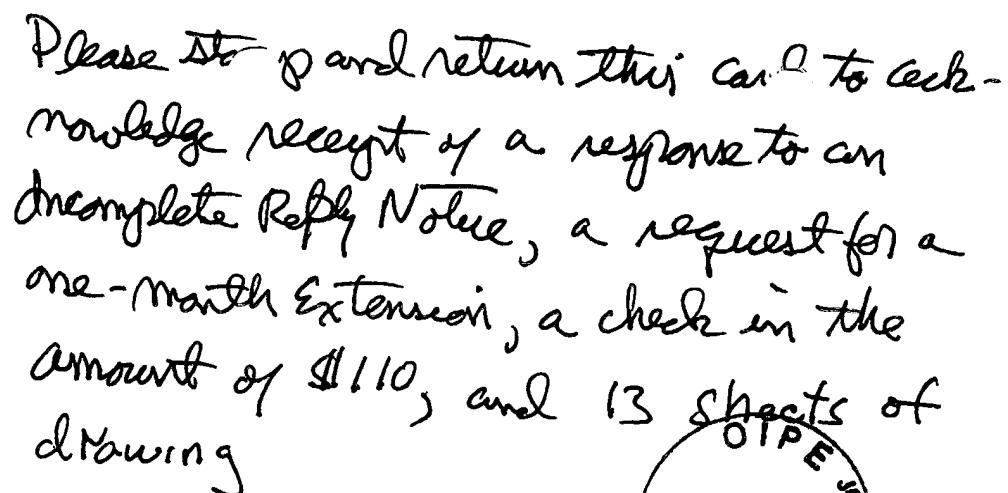 Please stamp and return this card to ack-
nowledge receipt of a response to an
Incomplete Reply Notice, a request for a
one-month Extension, a check in the
amount of $110, and 13 sheets of
drawing
OIPE